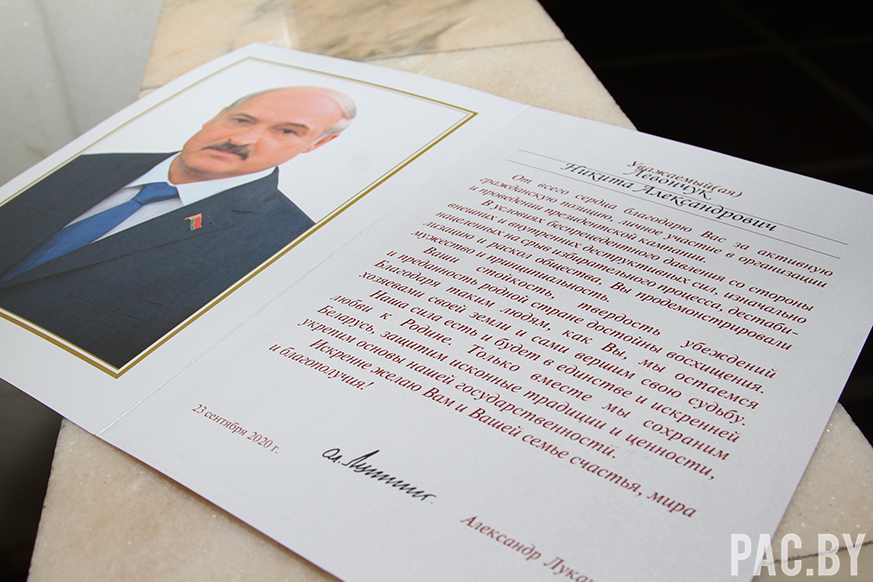 Уважаемый(ая)
Левончук
Никита Александрович
От всего сердца благодарю Вас за активную
гражданскую позицию, личное участие в организации
и проведении президентской кампании.
В условиях беспрецедентного давления со стороны
внешних и внутренних деструктивных сил, изначально
нацеленных на срыв избирательного процесса, дестаби-
лизацию и раскол общества, Вы продемонстрировали
мужество и принципиальность.
Ваши стойкость, твердость убеждений
и преданность родной стране достойны восхищения.
Благодаря таким людям, как Вы, мы остаемся
хозяевами своей земли и сами вершим свою судьбу.
Наша сила есть и будет в единстве и искренней
любви к Родине. Только вместе мы сохраним
Беларусь, защитим исконные традиции и ценности,
укрепим основы нашей государственности.
Искренне желаю Вам и Вашей семье счастья, мира
и благополучия!
23 сентября 2020 г.
Александр Лукаш
PAC.BY